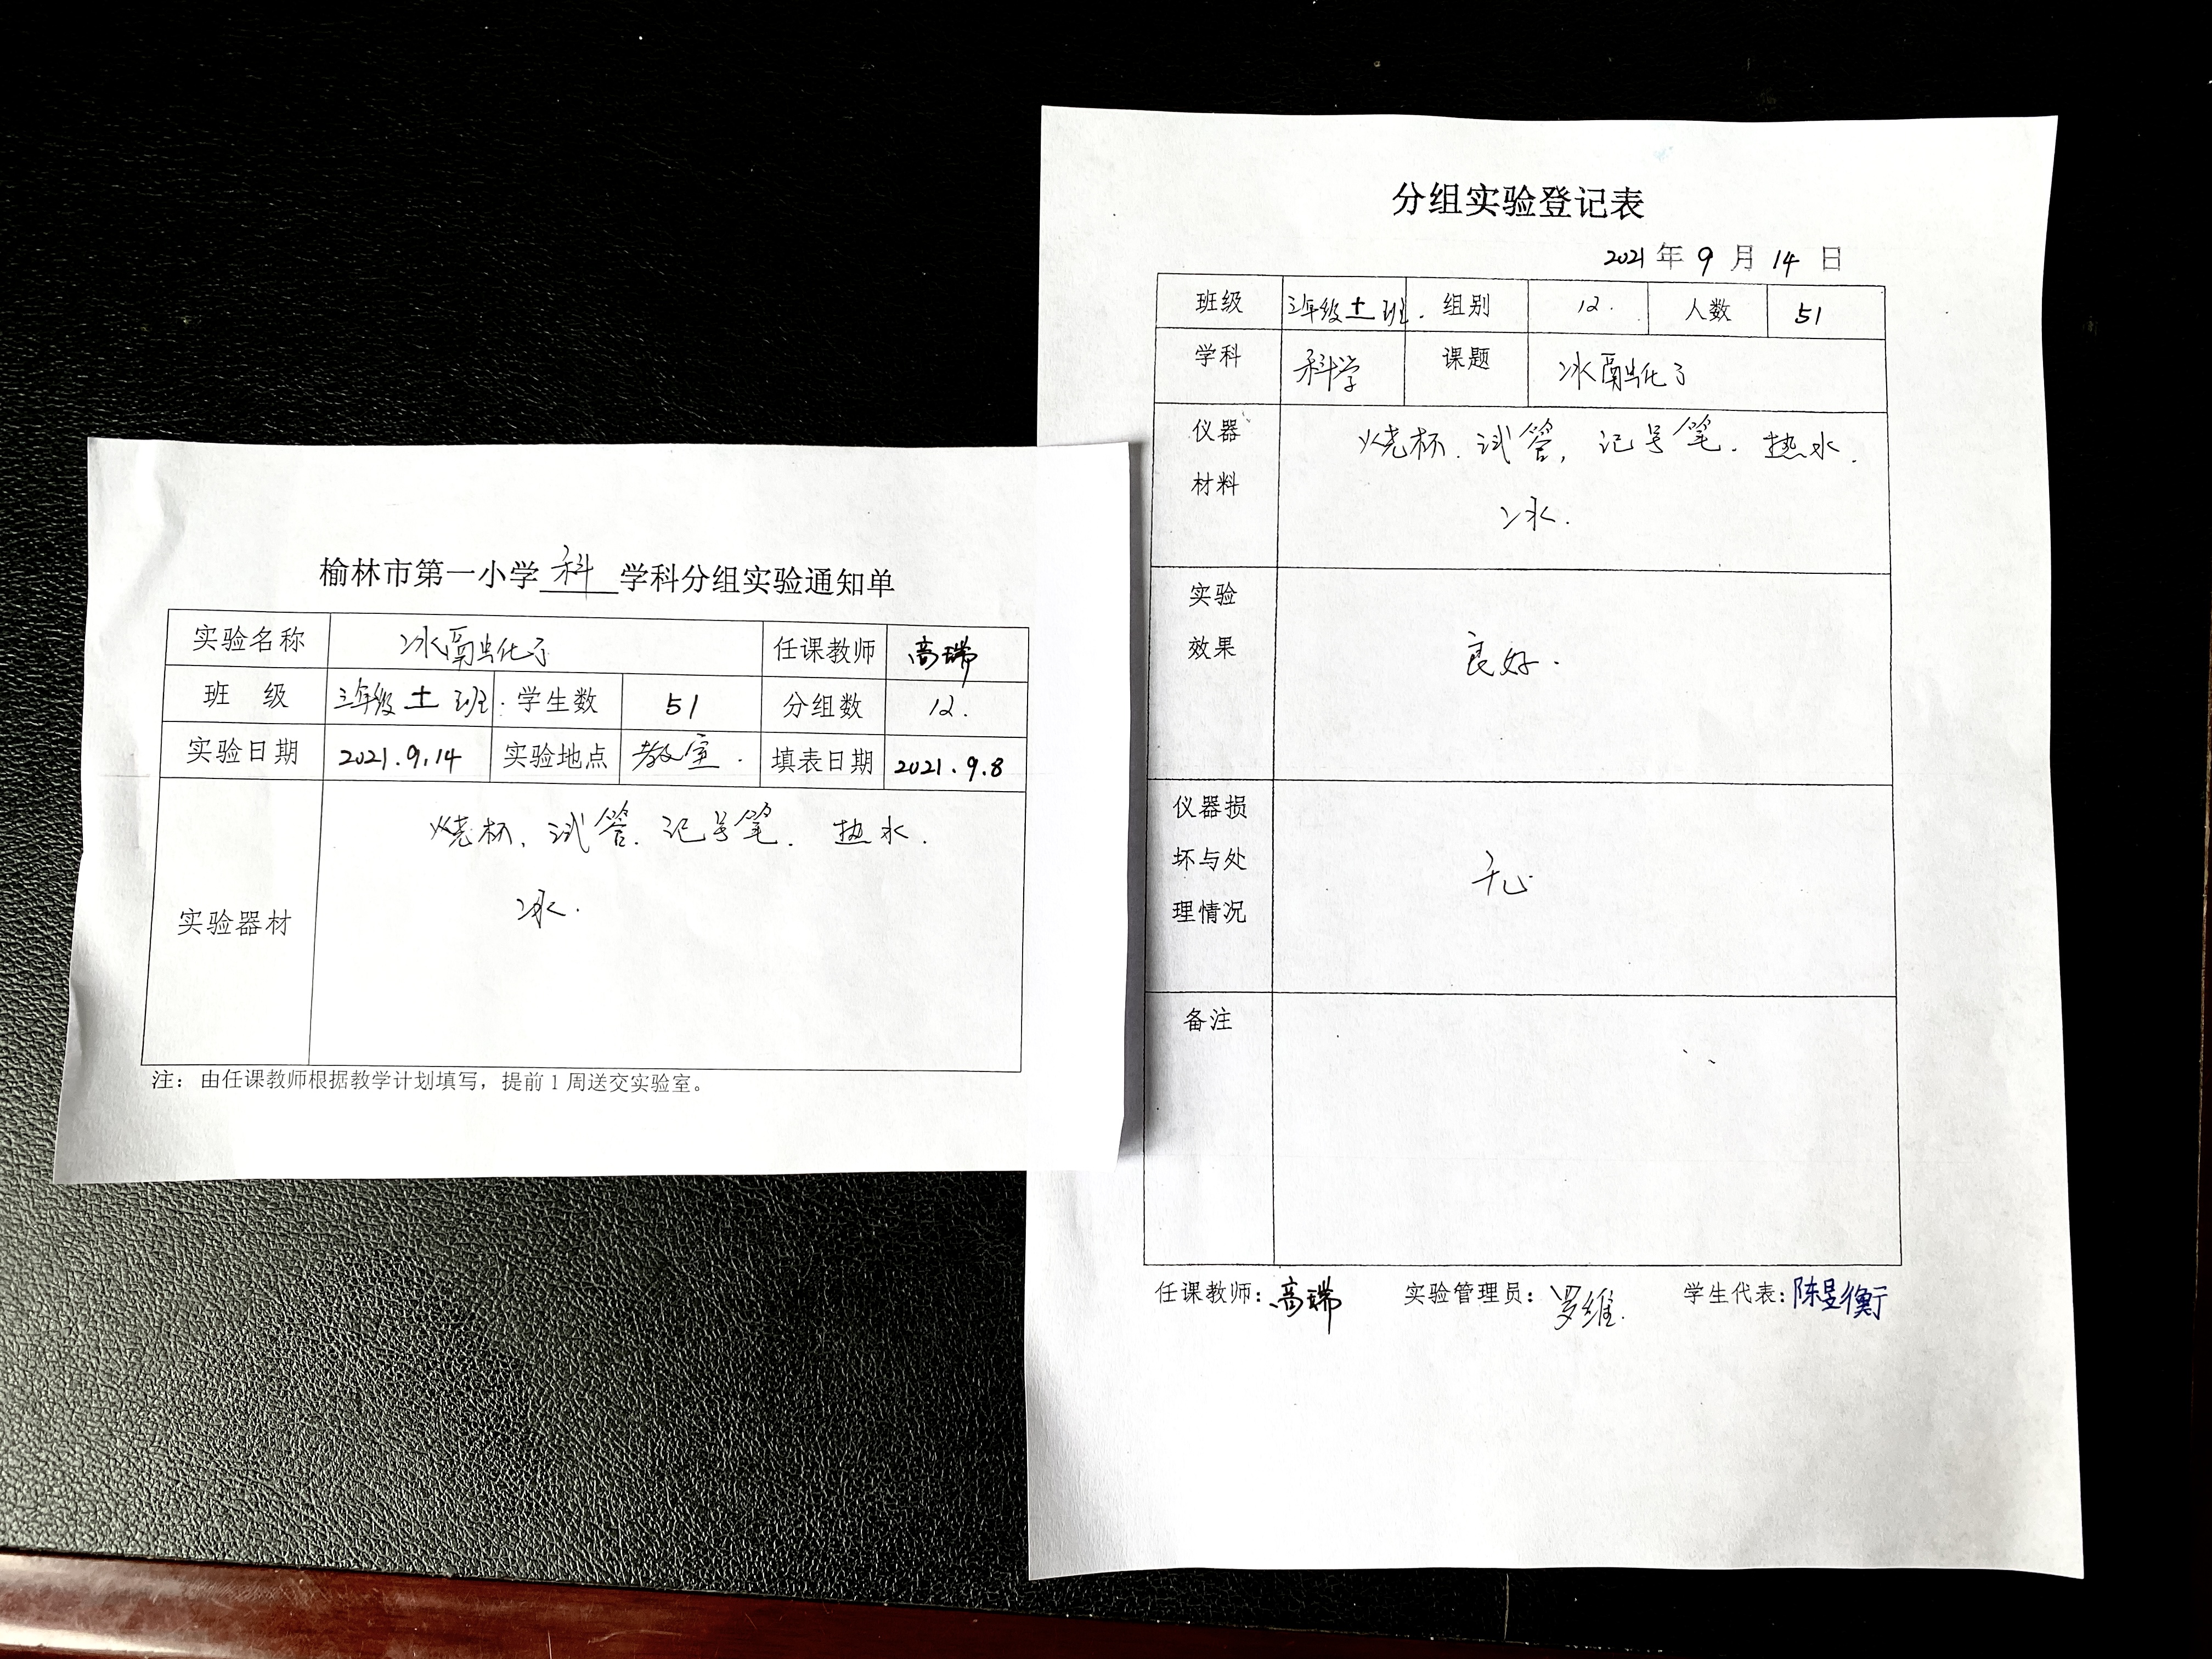 榆林市第一小学科学科分组实验通知单
实验名称 冰融化了 任课教师 高瑞
班 级 三年级十一班. 学生数 51 分组数 12.
实验日期 2021.9.14 实验地点 教室. 填表日期 2021.9.8
烧杯、试管、记号笔、热水、
实验器材 冰.
注：由任课教师根据教学计划填写，提前1周送交实验室。
分组实验登记表
2021 年 9 月 14 日
班级 三年级十一班. 组别 12. 人数 51
学科 科学 课题 冰融化了
仪器 烧杯、试管、记号笔、热水、
材料 冰.
实验
效果 良好.
仪器损
坏与处 无
理情况
备注
任课教师：高瑞 实验管理员：罗维. 学生代表：陈昱衡